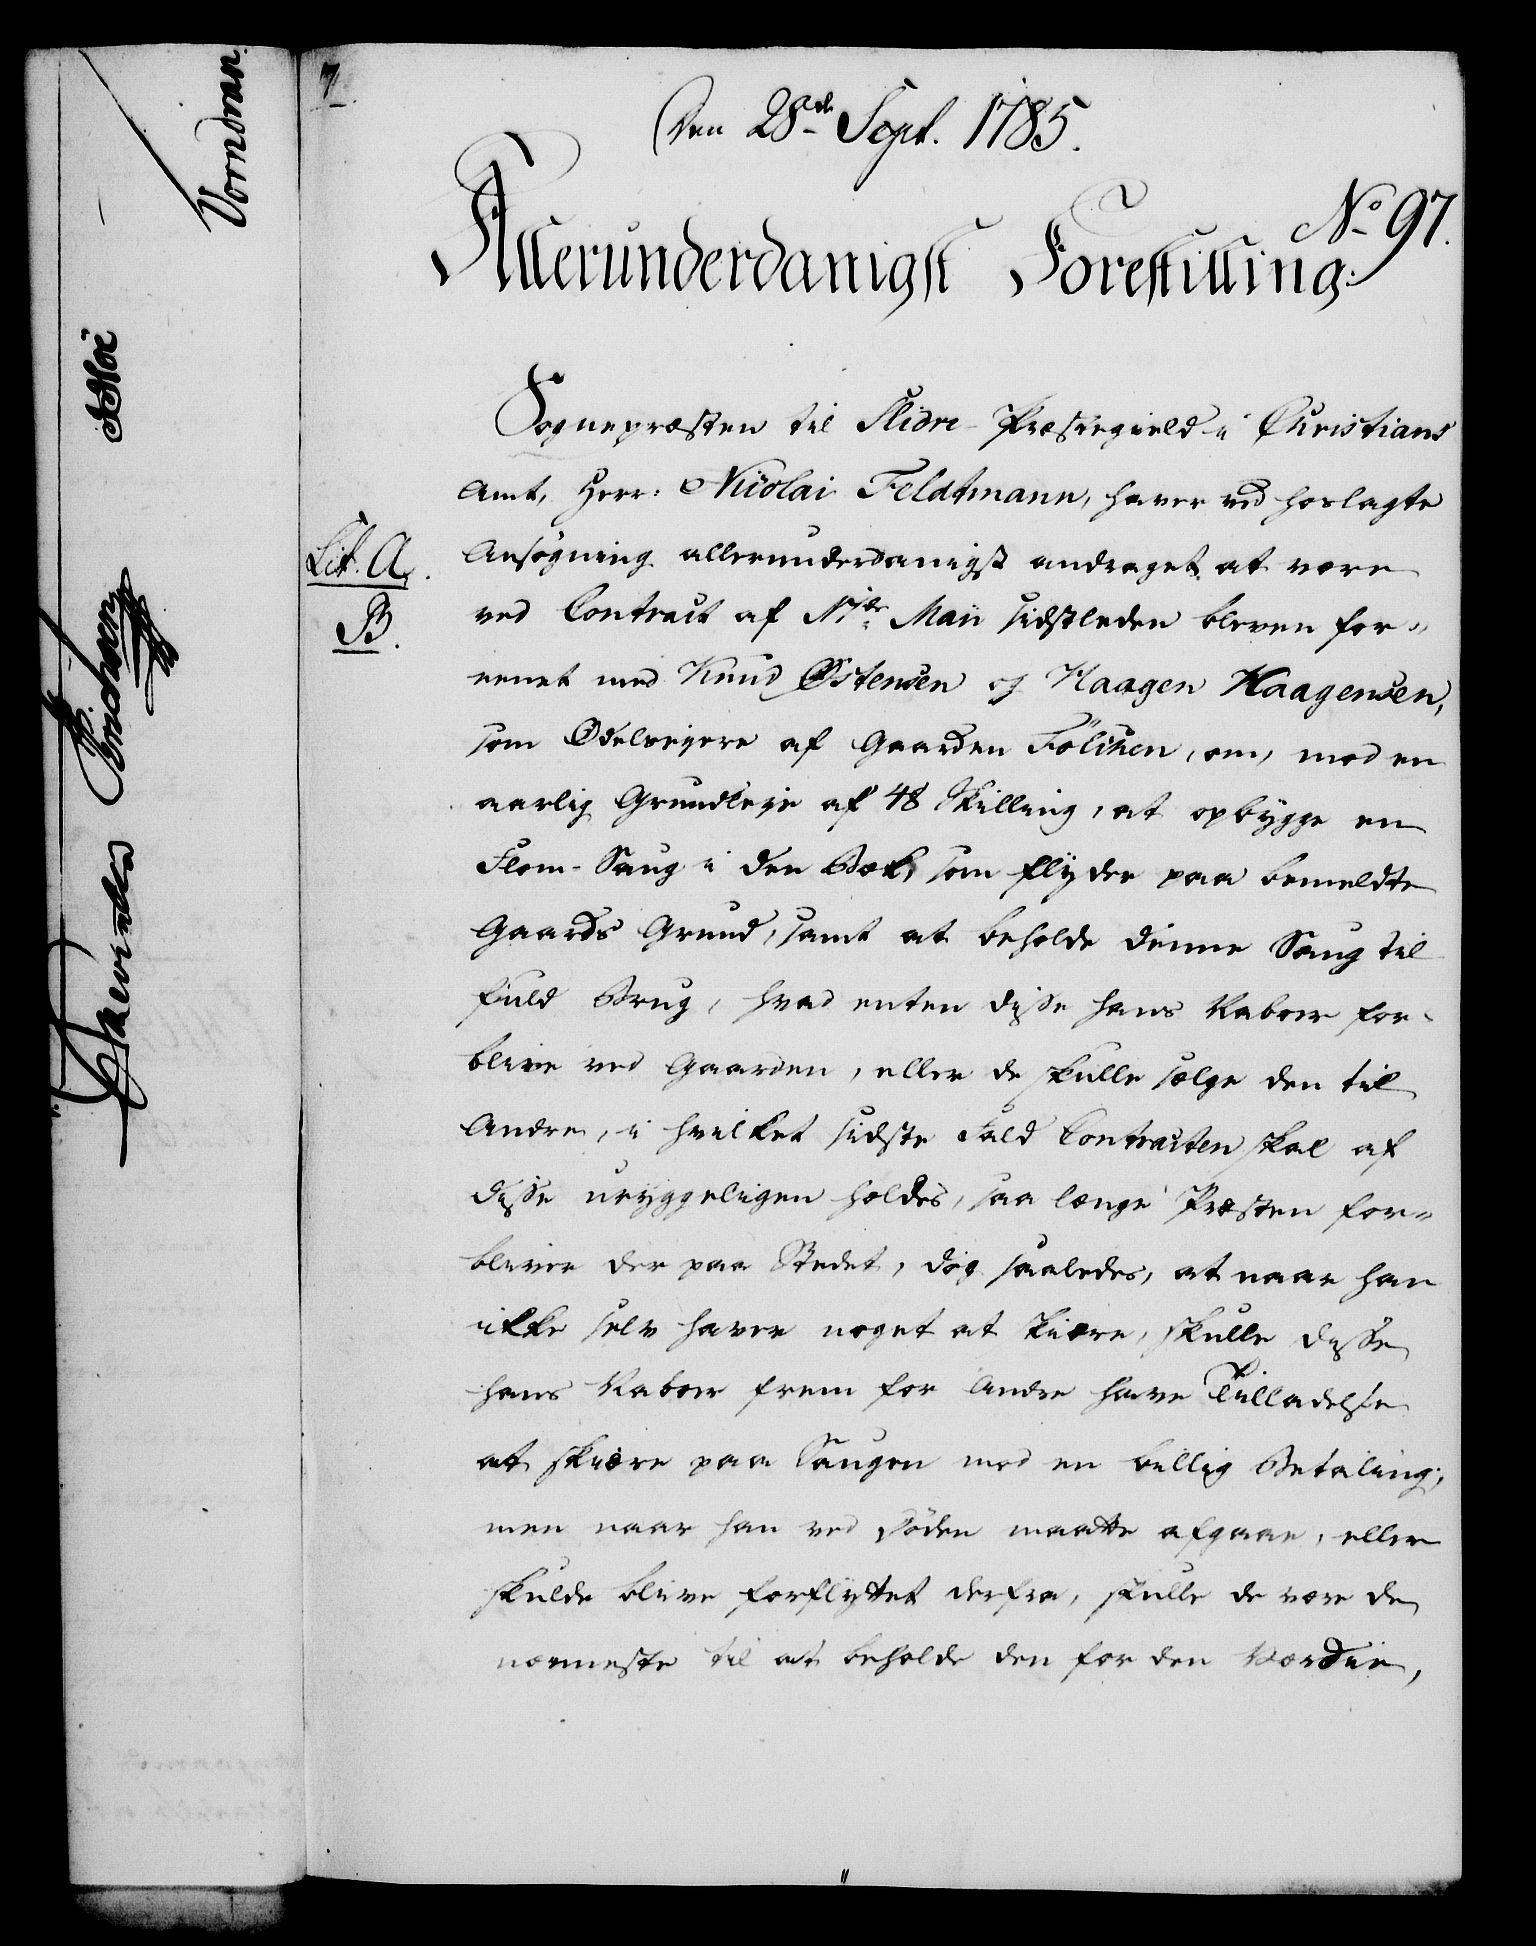 7
Den 28de Sept. 1785.
No 97.
Allerunderdanigst Forestilling:
Sognepræsten til Slidre Præstegield i Christians
Amt, Herr: Nicolai Feldtmann, haver ved hoslagte
Lit. A.
Ansøgning allerunderdanigst andraget at være
B.
ved Contract af Maii sidstleden bleven for-
eenet med Knud Østensen og Haagen Haagensen,
som Odelseyere af Gaarden Fölichen, om, mod en
aarlig Grundleye af 48 Skilling, at opbygge en
Flom-Saug i den Bæk, som flyder paa bemeldte
Gaards Grund, samt at beholde denne Saug til
fuld Brug, hvad enten disse hans Naboer for-
blive ved Gaarden, eller de skulle sælge den til
Andre, i hvilket sidste Fald Contracten skal af
disse uryggeligen holdes, saa længe Præsten for-
bliver der paa Stedet, dog saaledes, at naar han
ikke selv haver noget at skiære, skulle disse
hans Naboer frem for Andre have Tilladelse
at skiære paa Saugen mod en billig Betaling,
men naar han ved Døden maatte afgaae, eller
skulde blive forflyttet derfra, skulle de være de
nærmeste til at beholde den for den Værdie,
Vorndran.